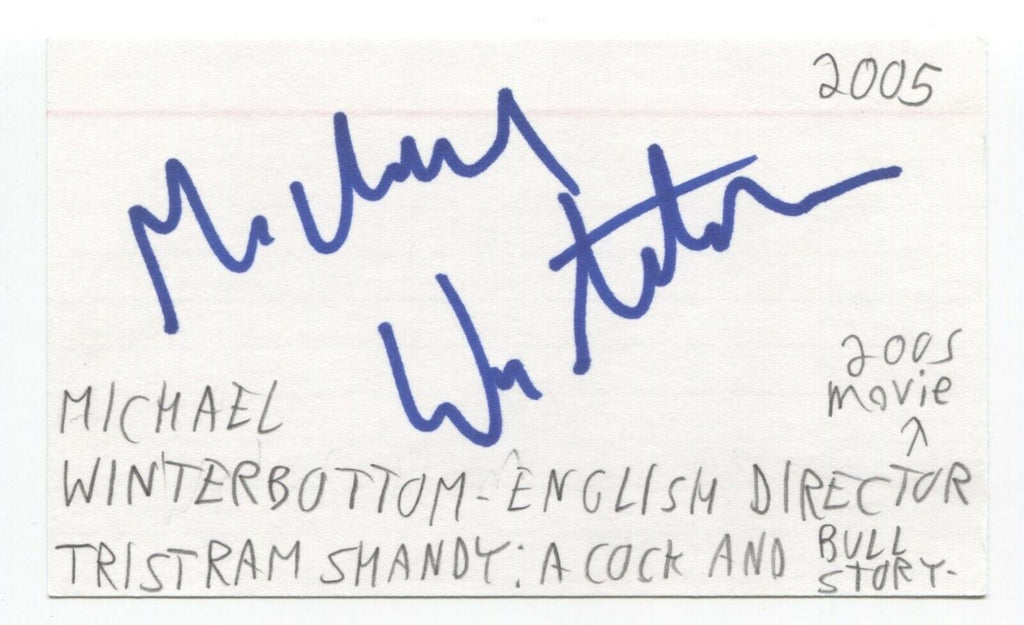 2005
Michael
Winterbottom
2005
movie
MICHAEL
WINTERBOTTOM - ENGLISH DIRECTOR
TRISTRAM SHANDY: A COCK AND BULL
STORY-